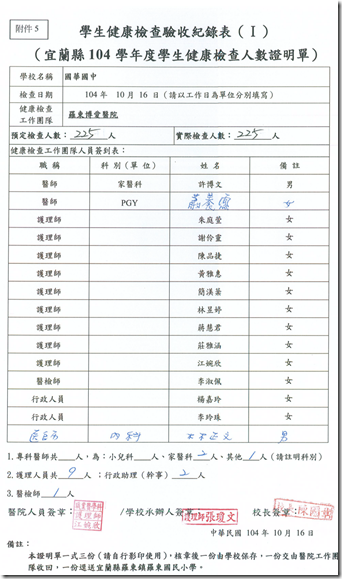 附件 5
學生健康檢查驗收紀錄表（Ⅰ）
（宜蘭縣 104 學年度學生健康檢查人數證明單）
學校名稱 國華國中
檢查日期 104 年 10 月 16 日（請以工作日為單位分別填寫）
健康檢查工作團隊 羅東博愛醫院
預定檢查人數：225人 實際檢查人數：225人
健康檢查工作團隊人員簽到表：
職稱 科別(單位) 姓名 備註
醫師 家醫科 許博文 男
醫師 PGY 女
護理師 朱庭萱 女
護理師 謝伶靈 女
護理師 陳品捷 女
護理師 黃雅惠 女
護理師 簡渼棻 女
護理師 林昱婷 女
護理師 蔣慧君 女
護理師 莊雅涵 女
護理師 江婉欣 女
醫檢師 李淑佩 女
行政人員 楊嘉玲 女
行政人員 李玲珠 女
醫師 內科 文 男
1.專科醫師共__人，為：小兒科__人、家醫科2人、其他1人（請註明科別）
2.護理人員共9人；行政助理（幹事）2人
3.醫檢師1人
醫院人員簽章：護理師江婉欣/學校承辦人簽章：護理師張瓊文 校長簽章：
中華民國 104 年 10 月 16 日
備註：
本證明單一式三份（請自行影印使用），核章後一份由學校保存，一份交由醫院工作團
隊收回，一份逕送宜蘭縣羅東鎮羅東國民小學。